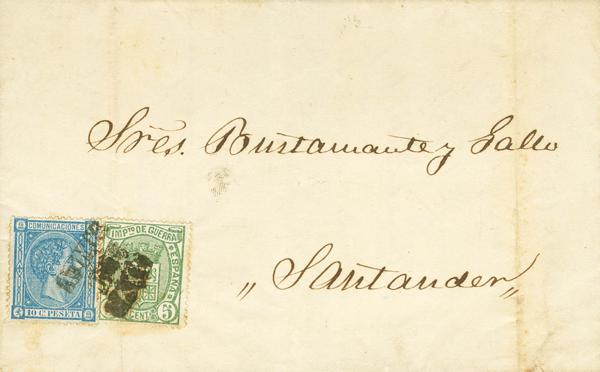 Sres. Bustamante y Gallo
„Santander„
COMUNICACIONES
10 Cs PESETA
IMPTO DE GUERRA
ESPAÑA
5 CENTS